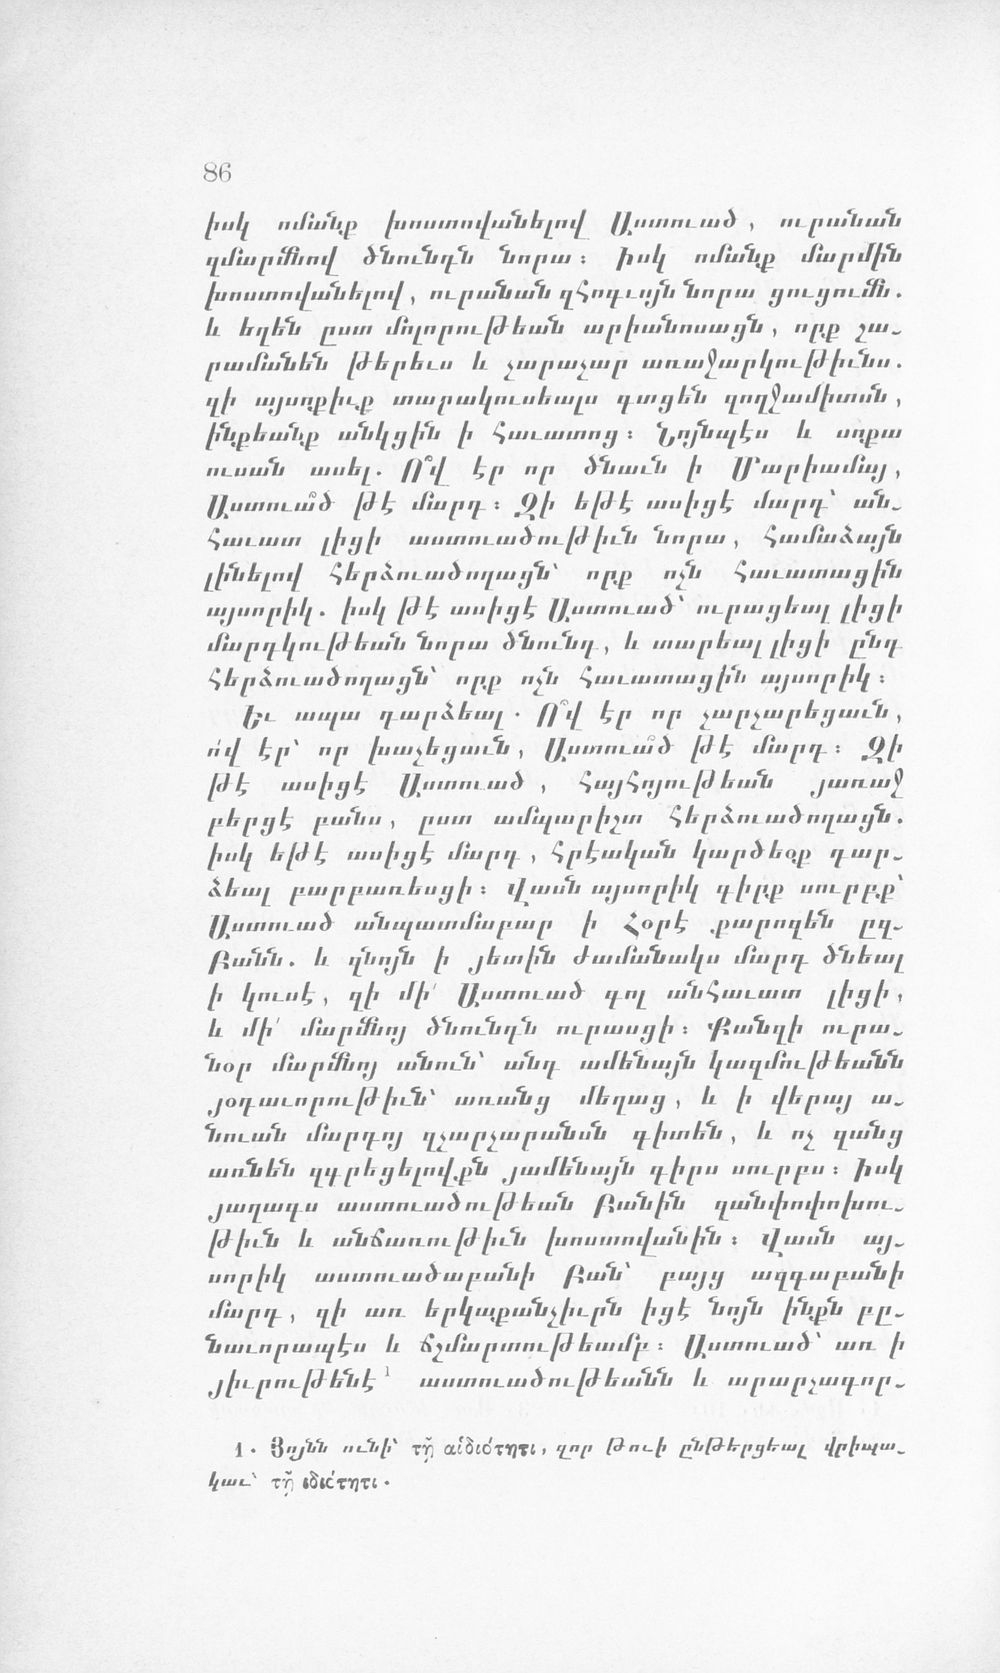 86
իսկ ոմանք խոստովանելով Աստուած, ուրանան
զմարմնով ծնունդն նորա։ Իսկ ոմանք մարմին
խոստովանելով, ուրանան զՀոգւոյն նորա ցուցումն.
և եղեն ըստ մոլորութեան արիանոսացն, որք շա֊
րամանեն թերեւս և չարաչար առաջարկութիւնս.
զի այսոքիւք տարակուսեալս գտցեն զողջամիտսն,
ինքեանք անկցին ի հաւատոց։ Նոյնպէս և սոքա
ուսան ասել. Ո՞վ էր որ ծնաւն ի Մարիամայ,
Աստուա՞ծ թէ մարդ։ Զի եթէ ասիցէ մարդ՝ ան֊
հաւատ լիցի աստուածութիւն նորա, համաձայն
լինելով հերձուածողացն՝ որք ոչն հաւատացին
այսորիկ. իսկ թէ ասիցէ Աստուած՝ ուրացեալ լիցի
մարդկութեան նորա ծնունդ, և տարեալ լիցի ընդ
հերձուածողացն՝ որք ոչն հաւատացին այսորիկ։
Եւ ապա դարձեալ. Ո՞վ էր որ չարչարեցաւն,
ո՛վ էր՝ որ խաչեցաւն, Աստուա՞ծ թէ մարդ։ Զի
թէ ասիցէ Աստուած, հայհոյութեան յառաջ
բերցէ բանս, ըստ ամպարիշտ հերձուածողացն.
իսկ եթէ ասիցէ մարդ, հրէական կարծեօք դար֊
ձեալ բարբառեսցի։ Վասն այսորիկ գիրք սուրբք՝
Աստուած անպատմաբար ի Հօրէ քարոզեն ըզ֊
Բանն. և զնոյն ի յետին ժամանակս մարդ ծնեալ
ի կուսէ, զի մի՛ Աստուած գոլ անհաւատ լիցի,
և մի՛ մարմնոյ ծնունդն ուրասցի։ Քանզի ուրա֊
նօր մարմնոյ անուն՝ անդ ամենայն կազմութեանն
յօդաւորութիւն՝ առանց մեղաց, և ի վերայ ա֊
նուան մարդոյ զչարչարանսն գիտեն, և ոչ զանց
առնեն զգրեցելովքն յամենայն գիրս սուրբս։ Իսկ
յաղագս աստուածութեան Բանին զանփոփոխու֊
թիւն և անճառութիւն խոստովանին։ Վասն այ֊
սորիկ աստուածաբանի Բան՝ բայց ազգաբանի
մարդ, զի առ երկաքանչիւրն իցէ նոյն ինքն բը֊
նաւորապէս և ճշմարտութեամբ։ Աստուած՝ առ ի
յիւրութենէ¹ աստուածութեանն և արարչագոր֊
1. Յոյնն ունի՝ τῇ αἰδιότητι, զոր Թուի ընթերցեալ վրիպա֊
կաւ՝ τῇ ἰδιότητι.